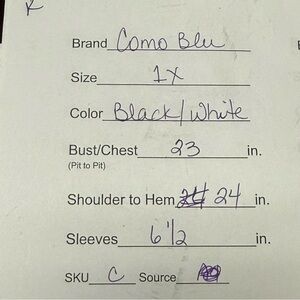 Brand Como Blu
Size 1X
Color Black/White
Bust/Chest 23 in.
(Pit to Pit)
Shoulder to Hem 24 in.
Sleeves 6 1/2 in.
SKU C Source